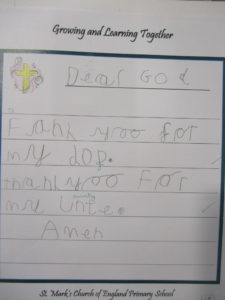 Growing and Learning Together
Dear God
Fank yoo for
my dog.
thank yoo For
my unte.
Amen
St. Mark's Church of England Primary School